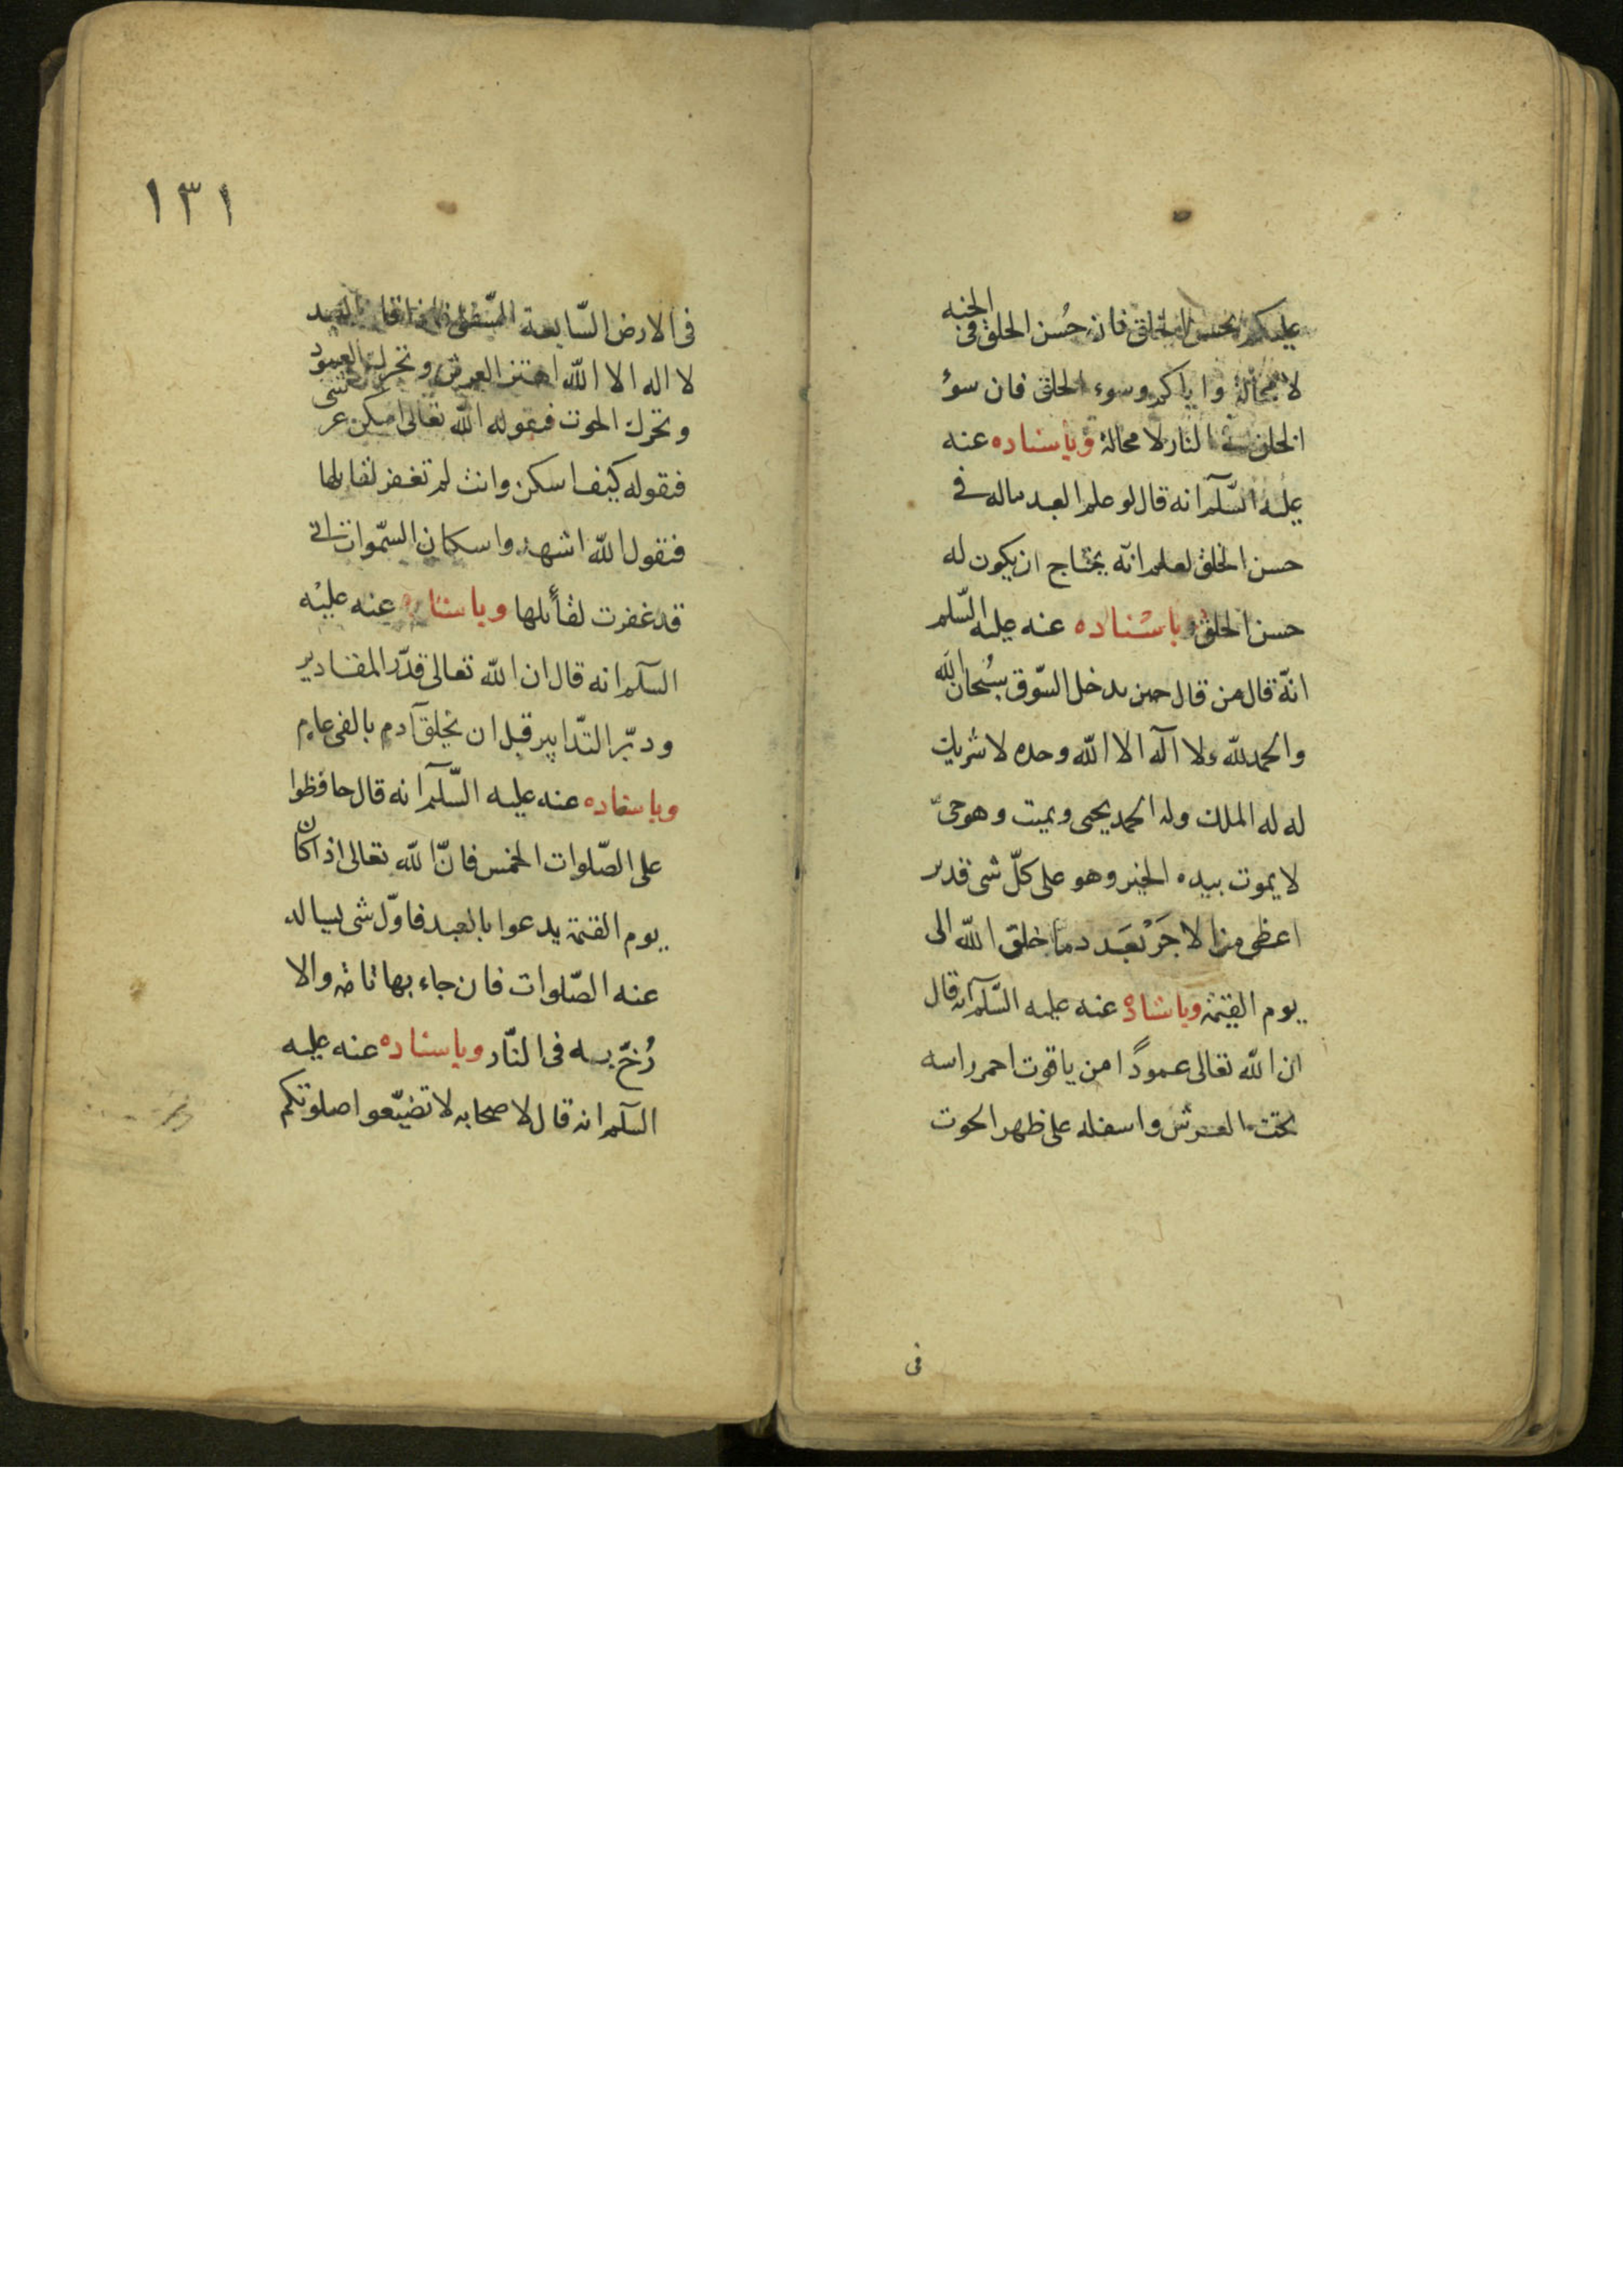 عليكم بحسن الخلق فان حُسن الخلق فى الجنه
لا محالة واياكم وسوء الخلق فان سوٴ
الخلق فى النار لا محالة وباسناده عنه
عليه السّلم انه قال لو علم العبد ماله فى
حسن الخلق لعلم انّه يحتاج ان يكون له
حسن الخلق وباسناده عنه عليه السّلم
انّه قال من قال حين يدخل السّوق سُبحان الله
والحمد لله ولا اله الا الله وحده لا شريك
له له الملك وله الحمد يحيى ويميت وهو حىّ
لا يموت بيده الخير وهو على كلّ شى قدير
اعطى من الاجر بعَدد ما خلق الله الى
يوم القيمة وباسناده عنه عليه السّلم انه قال
ان الله تعالى عمودًا من ياقوت احمر راسه
تحت العرش واسفله على ظهر الحوت
فى
١٣١
فى الارض السّابعة السّفلى فاذا قال العبد
لا اله الا الله اهتز العرش وتحرك العمود
وتحرك الحوت فيقوله الله تعالى اسكن عرشى
فيقوله كيف اسكن وانت لم تغفر لقايلها
فيقول الله اشهدوا سكان السّموات انى
قد غفرت لقائلها وباسناده عنه عليه
السّلم انه قال ان الله تعالى قدّر المقادير
ودبّر التدابير قبل ان يخلق آدم بالفى عام
وباسناده عنه عليه السّلم انه قال حافظوا
على الصّلوات الخمس فانّ الله تعالى اذا كان
يوم القيمة يدعوا بالعبد فاوّل شى يساله
عنه الصّلوات فان جاء بها تامّه والا
زُخّ به فى النّار وباسناده عنه عليه
السلم انه قال لاصحابه لا تضيّعوا صلوتكم